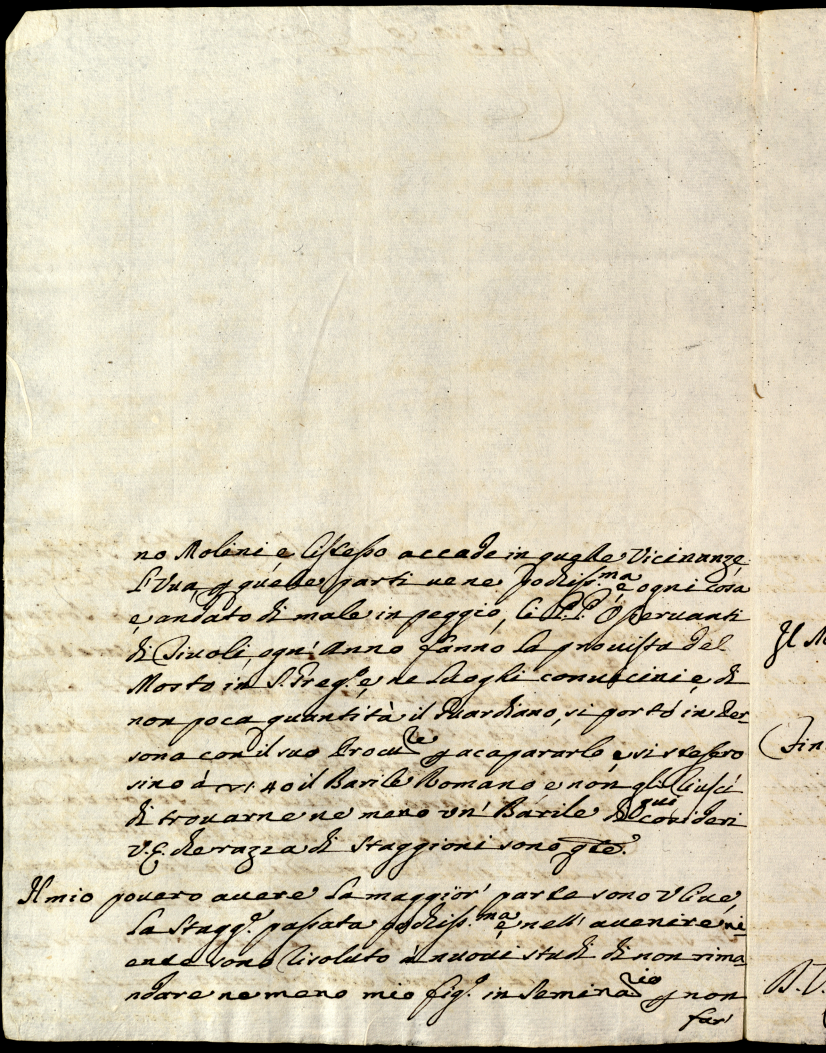 no Molini e l'istesso accade in quelle Vicinanze,
l'Vua p quelle parti ue ne pochiss.ma e ogni cosa
è andato di male in peggio, li P.P. Osseruanti
di Tiuoli, ogn'Anno fanno la prouista del
Mosto in S. Greg.o e, ne luoghi conuicini e, di
non poca quantità il Guardiano, si portò in Per-
sona con il suo Procu.re p acapararlo e si stesero
sino à 40 il Barile Romano e non gli riuscì
di trouarne ne meno vn' Barile di qui consideri
V.E. che razza di Staggioni sono qte.
Il mio pouero auere la maggior' parte sono Vliue,
la Stagg.e passata pochiss.ma e nell' auenire ni-
ente sono risoluto à nuoui studi di non rima-
ndare ne meno mio fig.o in Semina.rio p non
far'
Il